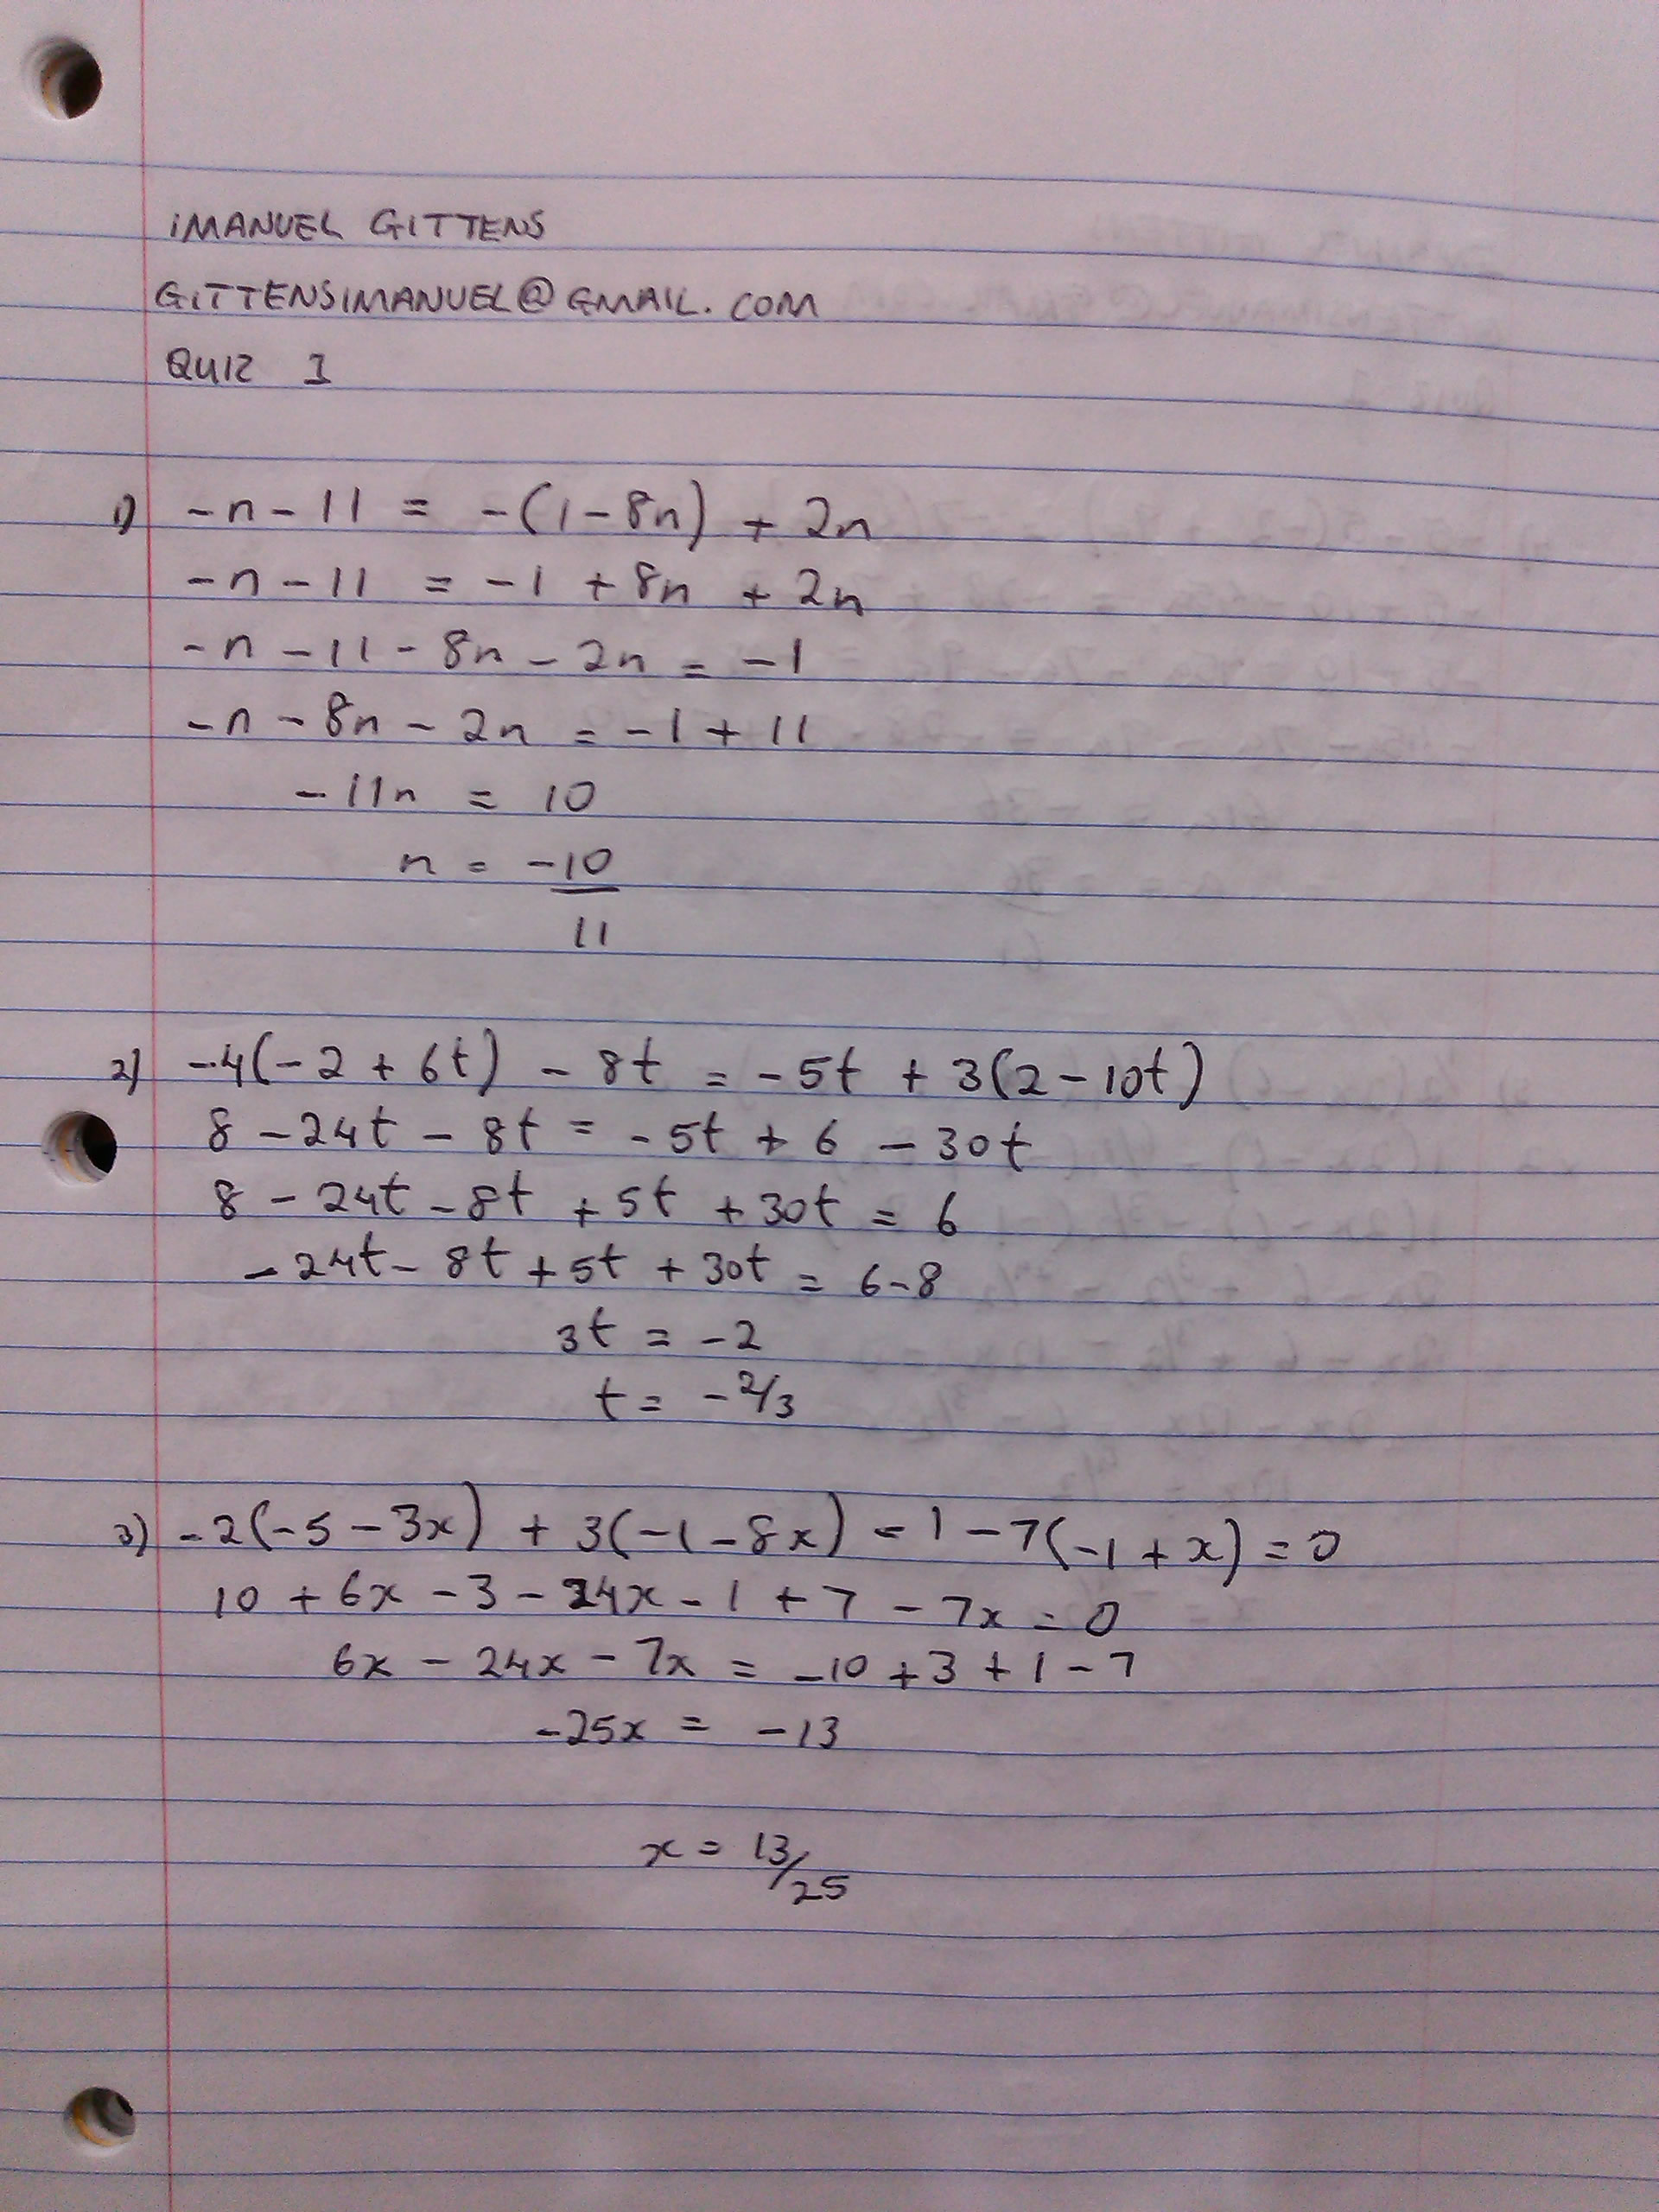 iMANUEL GiTTENS
GiTTENSIMANUEL@GMAIL.COM
QUIZ 1
1) -n - 11 = -(1 - 8n) + 2n
-n - 11 = -1 + 8n + 2n
-n - 11 - 8n - 2n = -1
-n - 8n - 2n = -1 + 11
-11n = 10
n = -10
11
2) -4(-2 + 6t) - 8t = -5t + 3(2 - 10t)
8 - 24t - 8t = -5t + 6 - 30t
8 - 24t - 8t + 5t + 30t = 6
-24t - 8t + 5t + 30t = 6 - 8
3t = -2
t = -2/3
3) -2(-5 - 3x) + 3(-1 - 8x) - 1 - 7(-1 + x) = 0
10 + 6x - 3 - 24x - 1 + 7 - 7x = 0
6x - 24x - 7x = -10 + 3 + 1 - 7
-25x = -13
x = 13/25